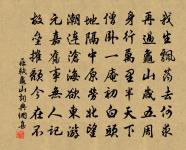 我生飄蕩去何求
再過龜山歲五周
身行萬里半天下
僧臥一庵初白頭
地隔中原勞北望
潮連滄海欲東遊
元嘉舊事無人記
故壘摧頹今在不
蘇軾龜山詞典網